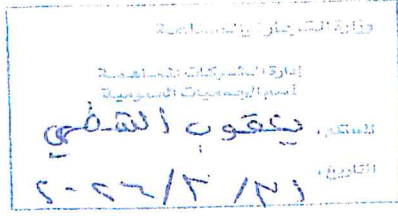 وزارة التجارة والصناعة
إدارة الشركات المساهمة
قسم الجمعيات العمومية
المستلم: يعقوب
التاريخ: ٢٠٢٢/٣/٣١